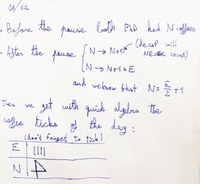 10/12
• Before the pause both P&D had N coffees
• After the pause { N → N+ (decaf will
NEVER count)
N → N+1 = E
and we know that N = E/2 + 1
Then we get with quick algebra the
coffee ticks of the day:
(don't forget to tick)
E ||||
N